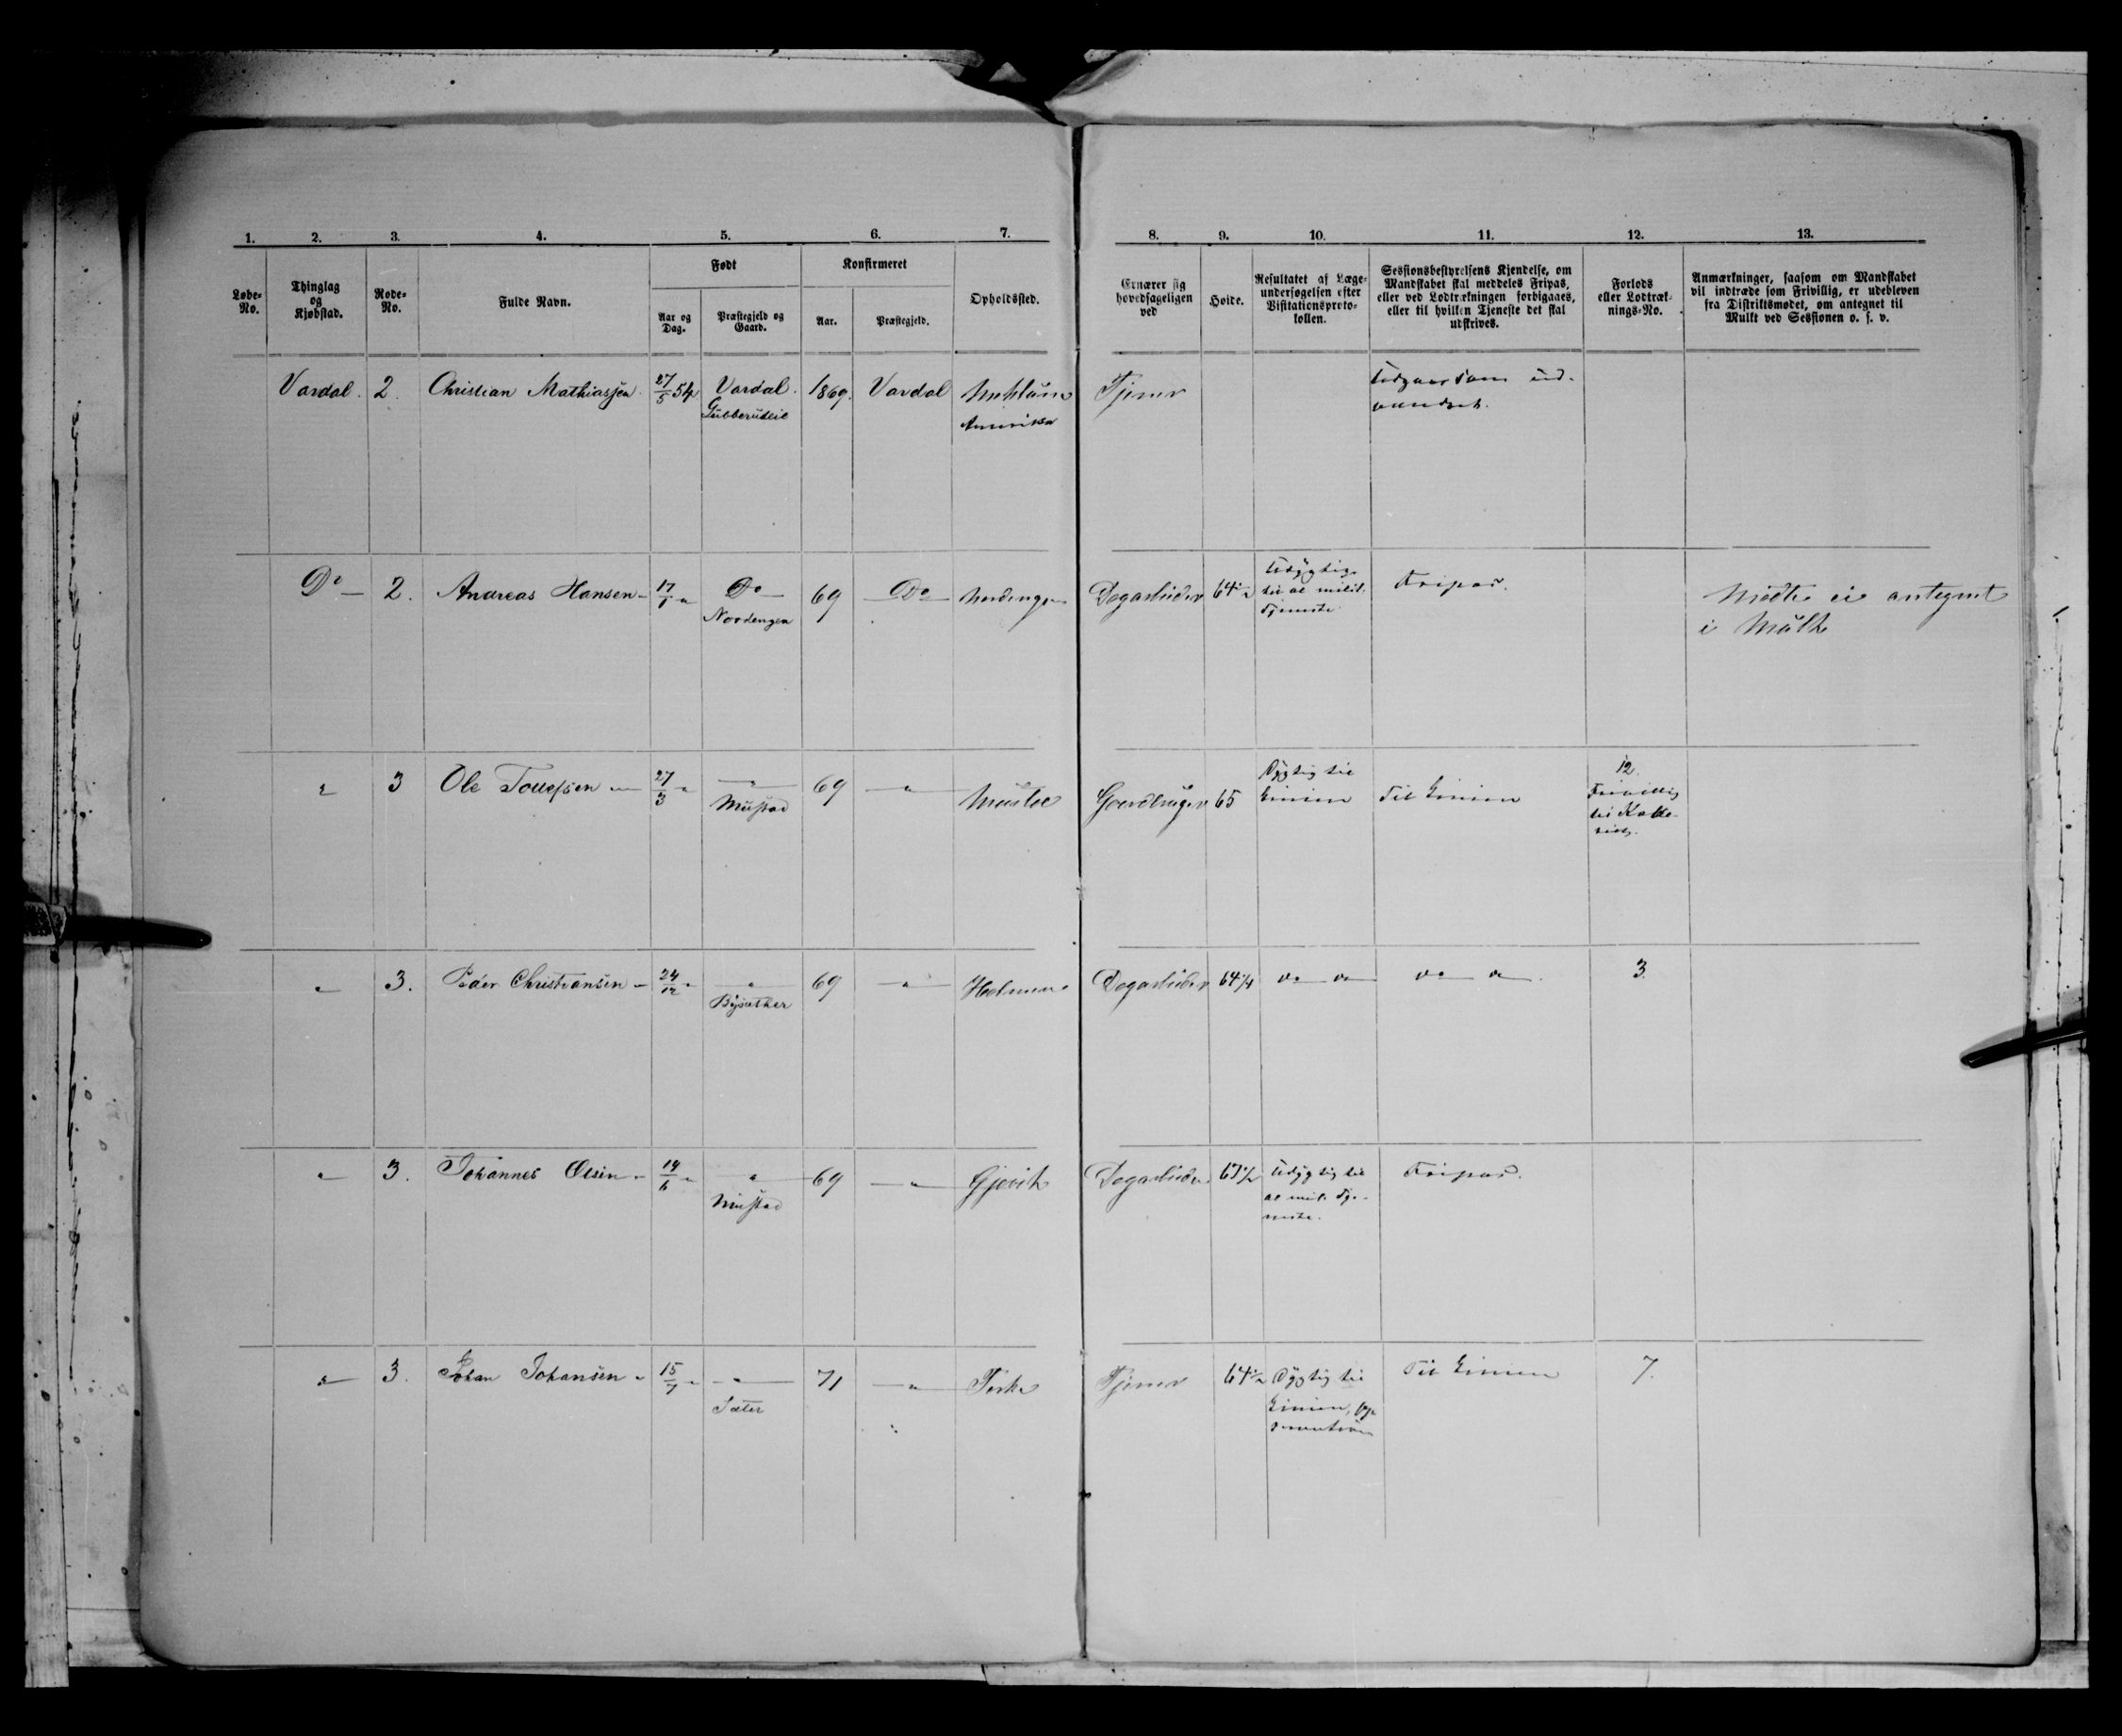 1. 2. 3. 4. 5. 6. 7. 8. 9. 10. 11. 12. 13.
Løbe-No.
Thinglag og Kjøbstad.
Rode-No.
Fulde Navn.
Født
Aar og Dag.
Præstegjeld og Gaard.
Konfirmeret
Aar.
Præstegjeld.
Opholdssted.
Ernærer sig hovedsageligen ved
Høide.
Resultatet af Læge-
undersøgelsen efter
Visitationsproto-
kollen.
Sessionsbestyrelsens Kjendelse, om
Mandskabet skal meddeles Fripas,
eller ved Lodtrækningen forbigaaes,
eller til hvilken Tjeneste det skal
udskrives.
Forlods
eller Lodtræk-
nings-No.
Anmærkninger, saasom om Mandskabet
vil indtræde som Frivillig, er udebleven
fra Distriktsmødet, om antegnet til
Mulkt ved Sessionen o. s. v.
Vardal. 2. Christian Mathiassen 27/5 54 Vardal. 1869. Vardal Tjener Udgaar som ud-
Gubberudeie Amerika vandret.
Do — 2. Andreas Hansen - 17/1 " Do — 69 Do — Nordengen Dagarbeider 64 1/2 Udygtig Fripas. Mødte ei antegnet
Nordengen til al milit. i Mulkt
Tjeneste
" 3 Ole Tollefsen 27/3 " — " — 69 — " — Mustad Gaardbruger 65 Dygtig til Linien Til Linien 12.
Mustad Frivillig
til Kavalle-
" 3. Peder Christiansen - 24/12 " — " — 69 — " — Holmen Dagarbeider 64 3/4 do do do do 3.
Bysæther
" 3. Johannes Olsen - 19/6 " — " — 69 — " — Gjøvik Dagarbeider Udygtig til Fripas.
Mustad al mil. Tje-
neste.
" 3. Johan Johansen " 15/7 " — " — 71 — " — Tjener 64 1/2 Dygtig til Til Linien 7.
Sæter Linien,